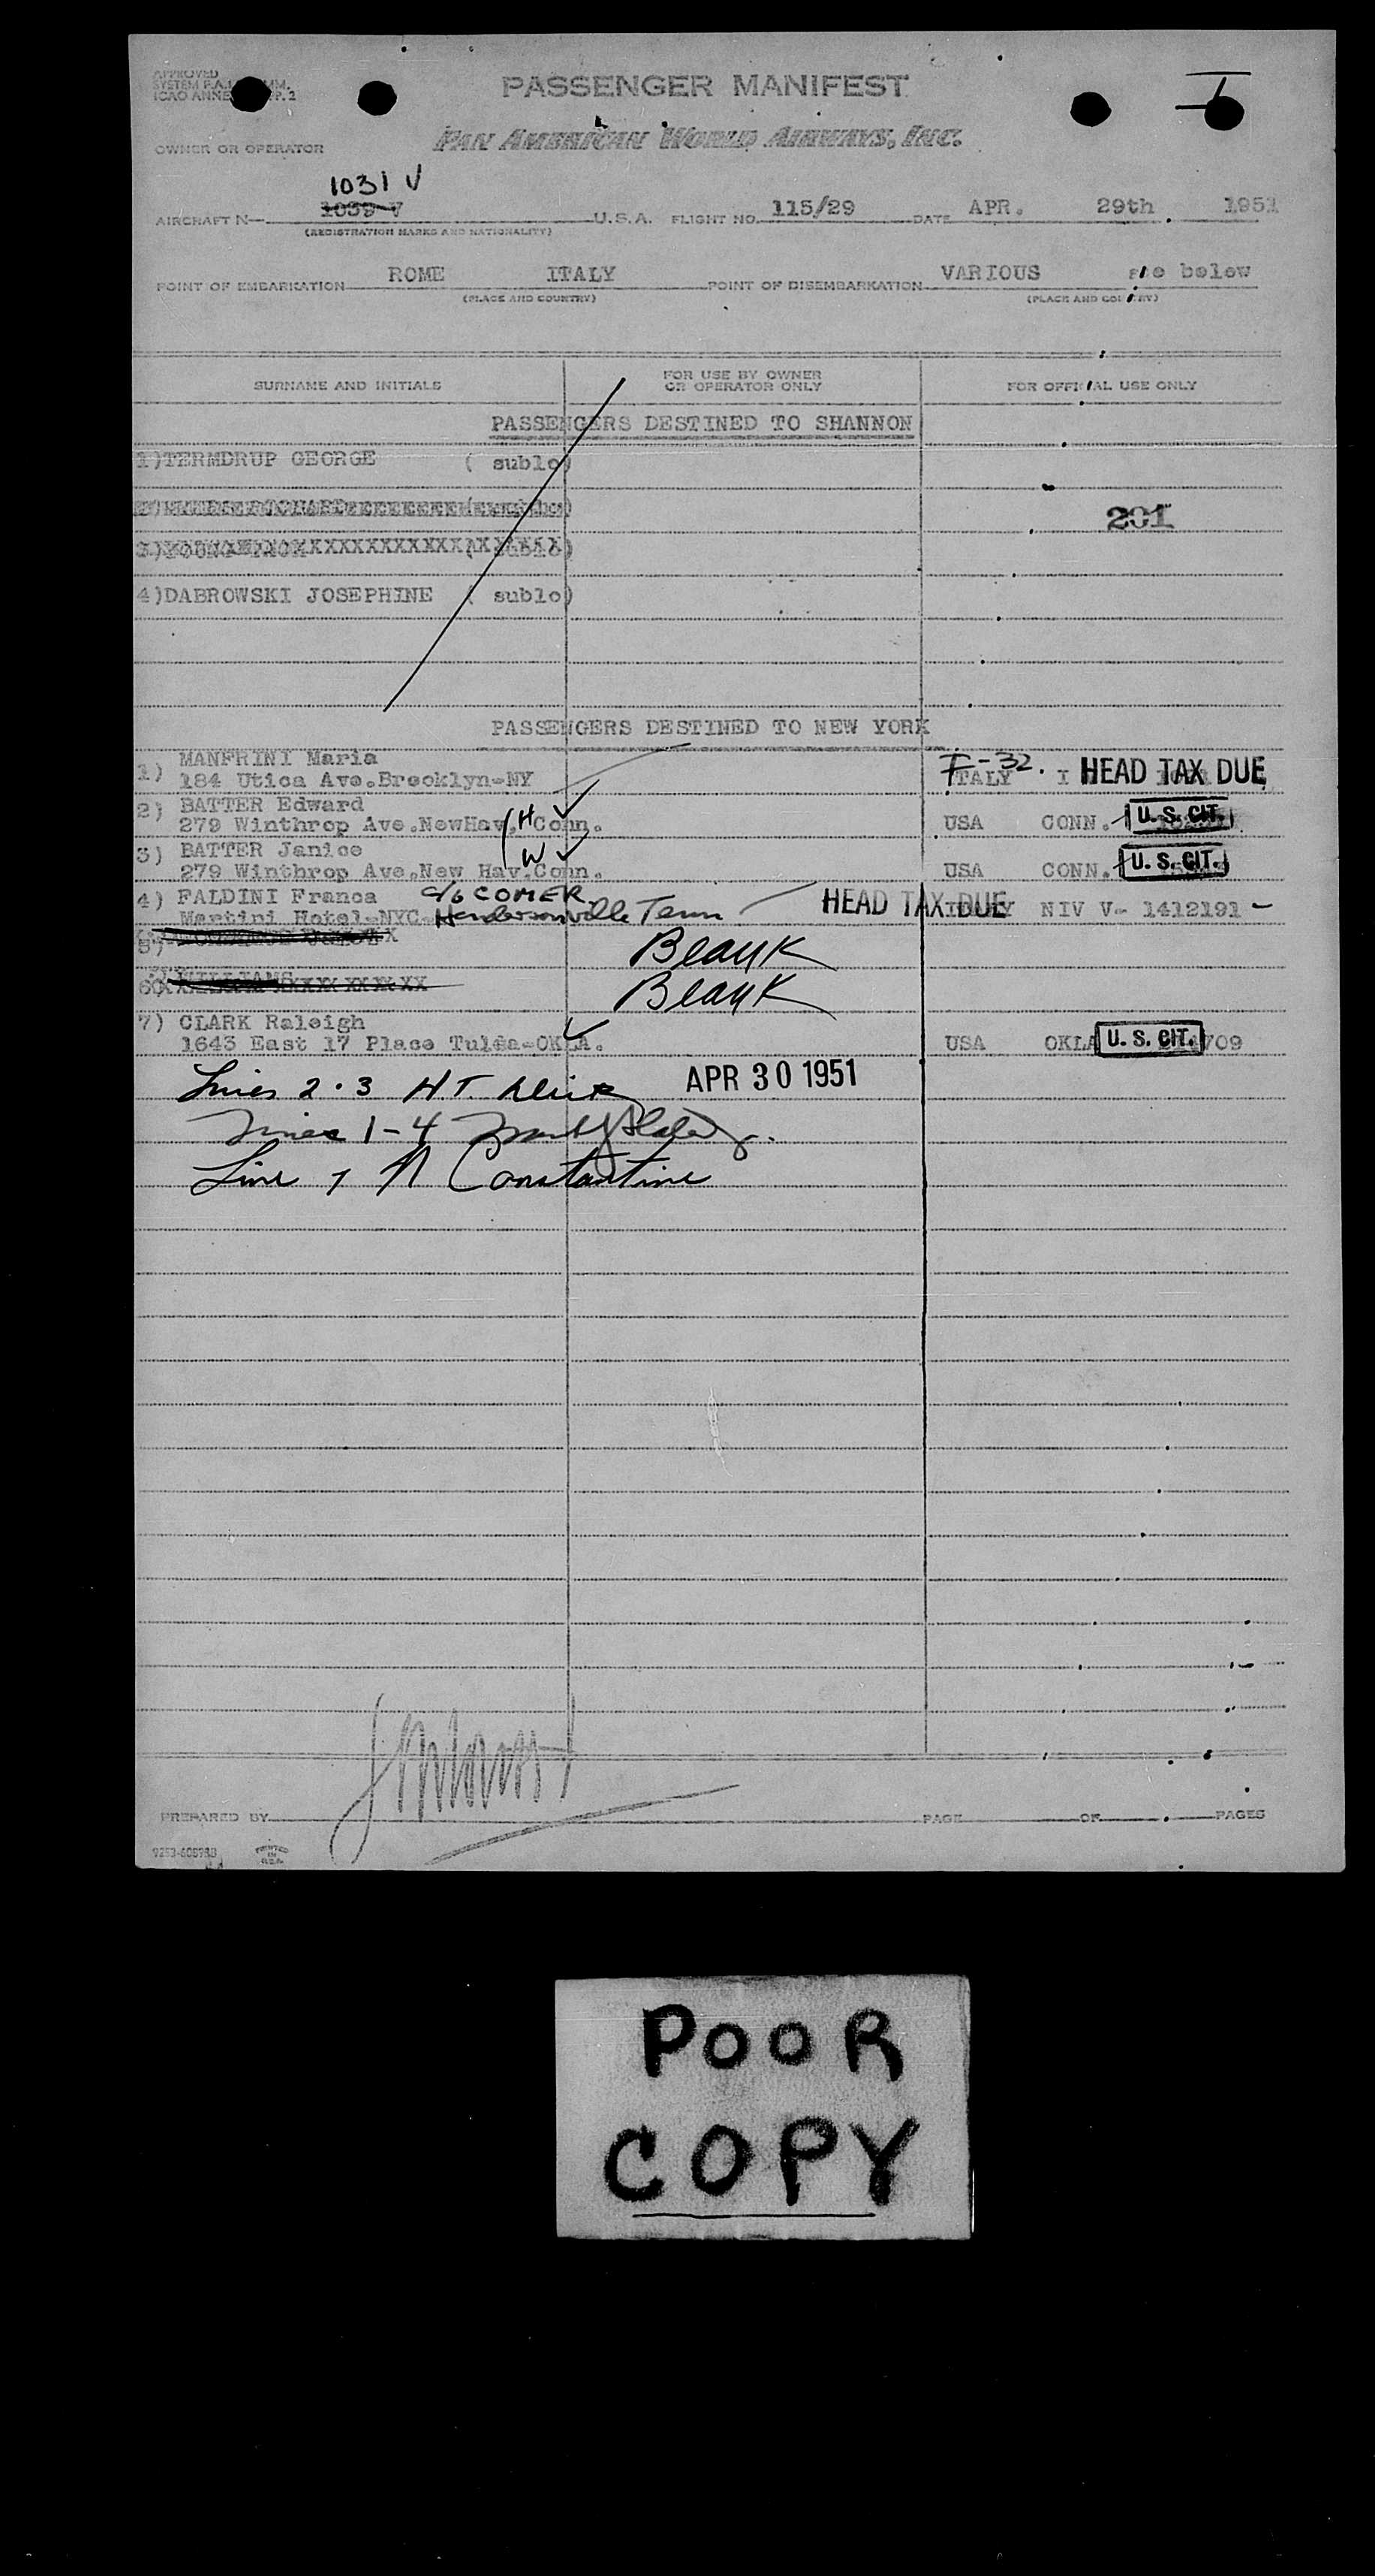 APPROVED
SYSTEM P.A.A. COMM.
ICAO ANNEX P. 2
PASSENGER MANIFEST
PAN AMERICAN WORLD AIRWAYS, INC.
OWNER OR OPERATOR
1031 V
AIRCRAFT N— 1039 V U.S.A. FLIGHT NO. 115/29 DATE APR. 29th, 1951
(REGISTRATION MARKS AND NATIONALITY)
POINT OF EMBARKATION ROME ITALY POINT OF DISEMBARKATION VARIOUS see below
(PLACE AND COUNTRY) (PLACE AND COUNTRY)
SURNAME AND INITIALS FOR USE BY OWNER OR OPERATOR ONLY FOR OFFICIAL USE ONLY
PASSENGERS DESTINED TO SHANNON
1)TERMDRUP GEORGE ( sublo)
201
4)DABROWSKI JOSEPHINE ( sublo)
PASSENGERS DESTINED TO NEW YORK
1) MANFRINI Maria F-32.
184 Utica Ave.Brooklyn-NY ITALY I HEAD TAX DUE
2) BATTER Edward
279 Winthrop Ave.NewHav. Conn. H USA CONN. U. S. CIT.
3) BATTER Janice W
279 Winthrop Ave.New Hav.Conn. USA CONN. U. S. CIT.
4) FALDINI Franca c/o COMER HEAD TAX DUE ITALY NIV V- 1412191 -
Martini Hotel-NYC- Hendersonville Tenn
5) Blank
6) WILLIAMS Blank
7) CLARK Raleigh
1643 East 17 Place Tulsa-OKLA. USA OKLA U. S. CIT. 709
Lines 2·3 HT. APR 30 1951
Lines 1-4
Line 7 N Constantine
PREPARED BY PAGE OF PAGES
PRINTED IN U.S.A.
POOR
COPY